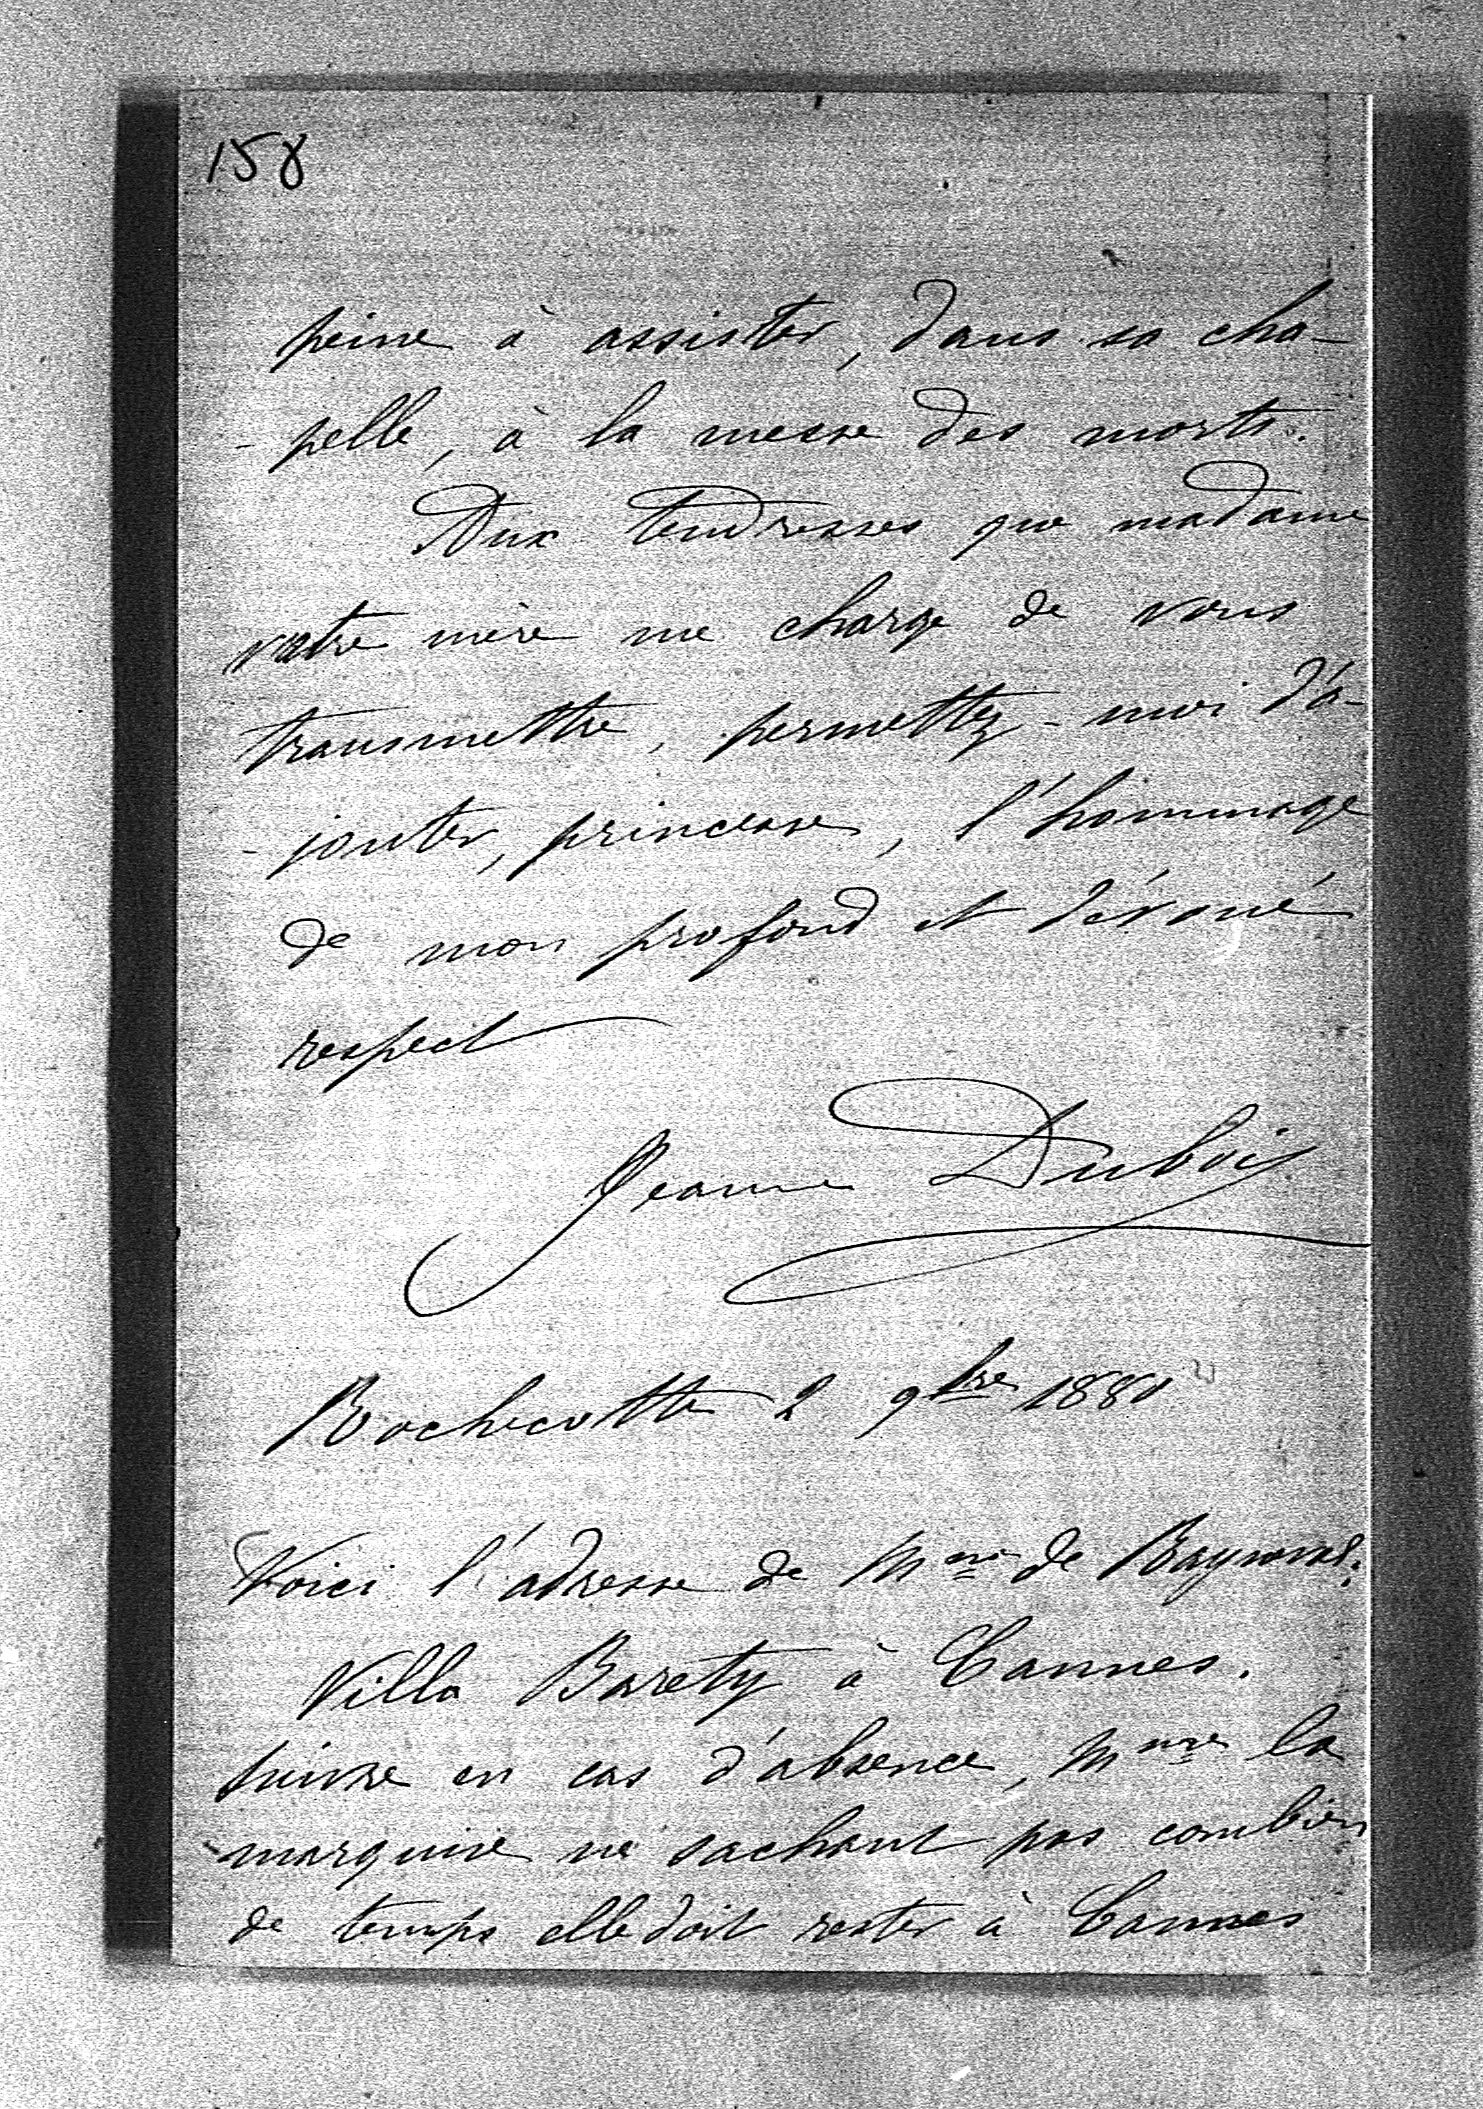 158
peine à assister, dans sa cha-
- pelle, à la messe des morts.
Aux tendresses que madame
votre mère me charge de vous
transmettre, permettez-moi d'a-
- jouter, princesse, l'hommage
de mon profond et dévoué
respect
Jeanne Dubois
Rochecotte 2 9bre 1880
Voici l'adresse de Mme de Raymond.
Villa Barety à Cannes.
suivre en cas d'absence, Mme la
marquise ne sachant pas combien
de temps elle doit rester à Cannes